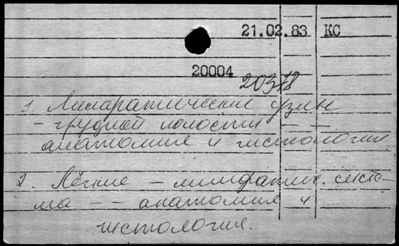 21.02.83 КС
20004
20378
1. Лимфатические узлы
- грудной полости -
анатомия и гистология
2. Лёгкие - лимфатич. систе-
ма - - анатомия и
гистология.